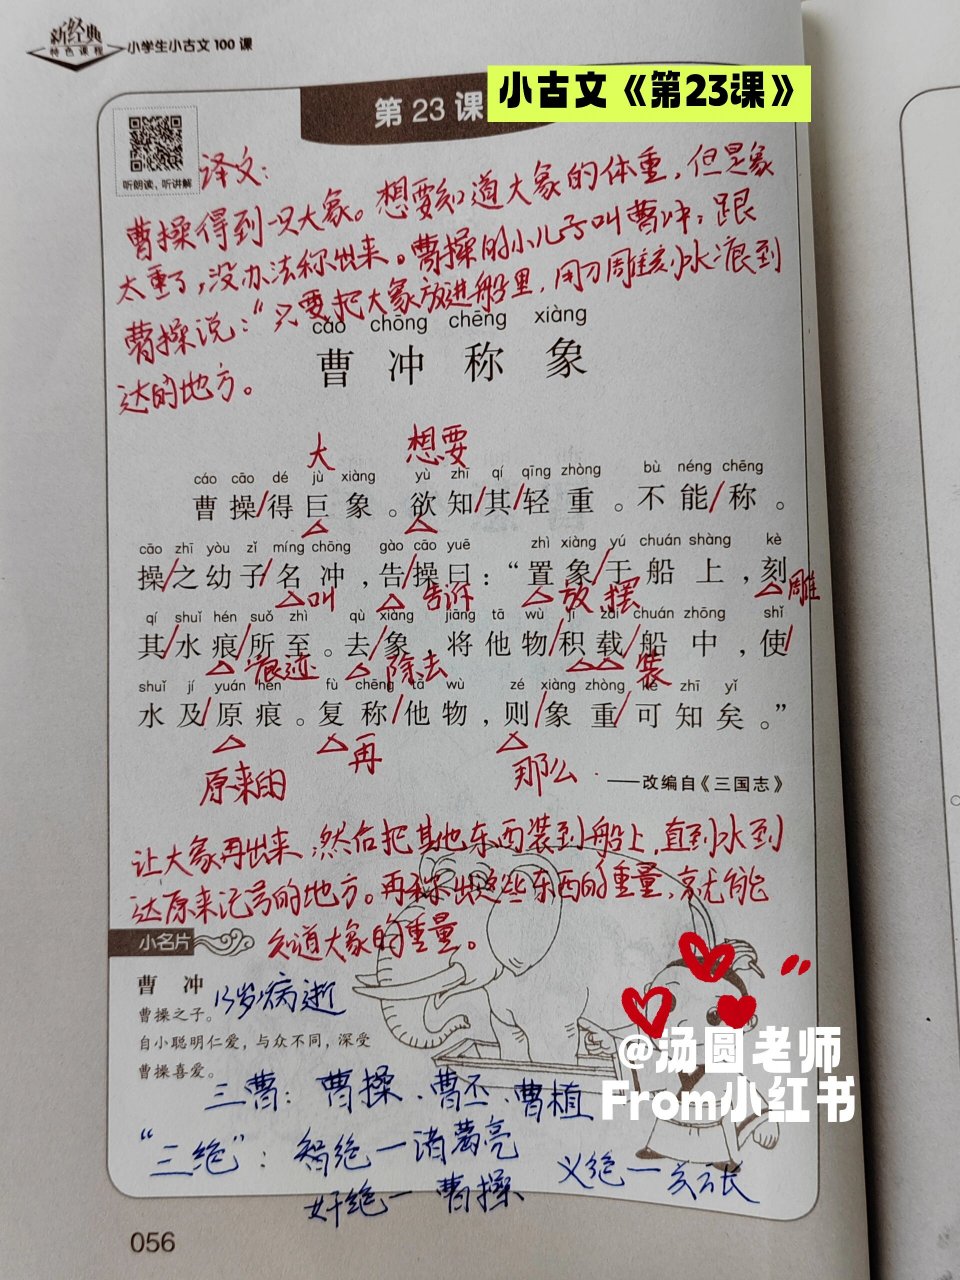 新经典
特色课程
小学生小古文100课
第23课
小古文《第23课》
听朗读、听讲解
译文：
曹操得到一只大象。想要知道大象的体重，但是象
太重了，没办法称出来。曹操的小儿子叫曹冲，跟
曹操说："只要把大象放进船里，用刀雕刻水痕到
达的地方。
cáo chōng chēng xiàng
曹冲称象
大 想要
cáo cāo dé jù xiàng yù zhī qí qīng zhòng bù néng chēng
曹操/得巨象。欲知/其/轻重。不能/称。
cāo zhī yòu zǐ míng chōng gào cāo yuē zhì xiàng yú chuán shàng kè
操/之幼子/名冲，告/操曰："置象/于船上，刻
叫 告诉 放、摆 雕
qí shuǐ hén suǒ zhì qù xiàng jiāng tā wù jī zài chuán zhōng shǐ
其/水痕/所至。去/象，将他物/积载/船中，使/
痕迹 除去 装
shuǐ jí yuán hén fù chēng tā wù zé xiàng zhòng kě zhī yǐ
水及/原痕。复称/他物，则/象重/可知矣。"
原来的 再 那么
——改编自《三国志》
让大象再出来，然后把其他东西装到船上，直到水到
达原来记号的地方。再称出这些东西的重量，就能
知道大象的重量。
小名片
曹冲
13岁病逝
曹操之子。
自小聪明仁爱，与众不同，深受
曹操喜爱。
三曹：曹操、曹丕、曹植
"三绝"：智绝一诸葛亮
义绝一关云长
奸绝一曹操
@汤圆老师
From小红书
056